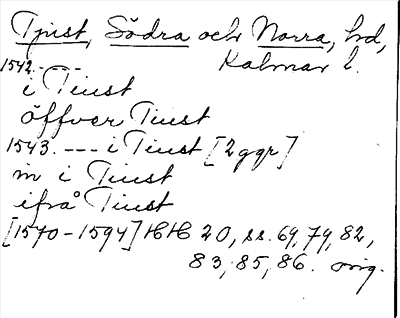 Tjust, Södra och Norra, hd,
Kalmar l.
1542. - - -
i Tiust
öffver Tiust
1543. --- i Tiust [2 ggr]
m i Tiust
ifrå Tiust
[1570-1594] HH 20, ss. 69, 79, 82,
83, 85, 86. orig.